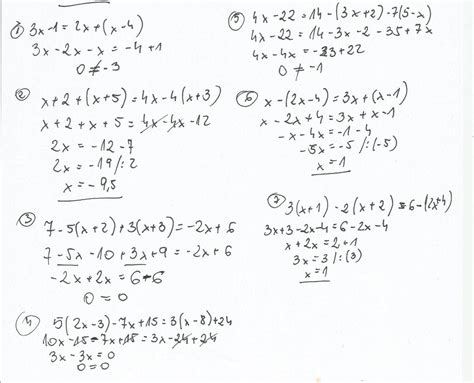 ① 3x-1=2x+(x-4)
3x-2x-x=-4+1
0≠-3
② x+2+(x+5)=4x-4(x+3)
x+2+x+5=4x-4x-12
2x=-12-7
2x=-19/:2
x=-9,5
③ 7-5(x+2)+3(x+3)=-2x+6
7-5x-10+3x+9=-2x+6
-2x+2x=6-6
0=0
④ 5(2x-3)-7x+15=3(x-8)+24
10x-15-7x+15=3x-24+24
3x-3x=0
0=0
⑤ 4x-22=14-(3x+2)-7(5-x)
4x-22=14-3x-2-35+7x
4x-4x=-23+22
0≠-1
⑥ x-(2x-4)=3x+(x-1)
x-2x+4=3x+x-1
-x-4x=-1-4
-5x=-5/:(-5)
x=1
⑦ 3(x+1)-2(x+2)=6-(2x+4)
3x+3-2x-4=6-2x-4
x+2x=2+1
3x=3/:(3)
x=1